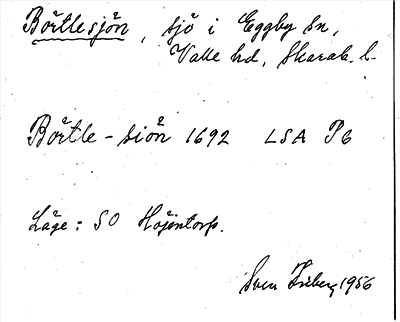 Börtlesjön, sjö i Eggby sn,
Valle hd, Skarab. l.
Börtle-siön 1692 LSA P6
Läge: SO Höjentorp.
Sven 1956